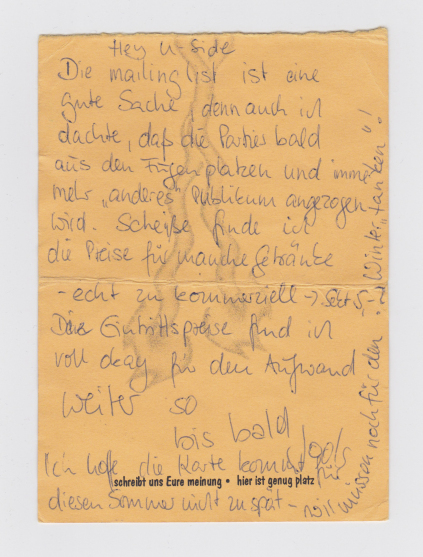 Hey U-Side
Die mailinglist ist eine
gute Sache, denn auch ich
dachte, daß die Parties bald
aus den Fugen platzen und immer
mehr „anderes" Publikum angezogen
wird. Scheiße finde ich
die Preise für manche Getränke
- echt zu kommerziell → Sekt 5,-
Die Eintrittspreise find ich
voll okay für den Aufwand
Weiter so
bis bald
Ich hoffe, die Karte kommt für
schreibt uns Eure meinung • hier ist genug platz
diesen Sommer nicht zu spät -
wir müssen noch für den Winter „tanken"!